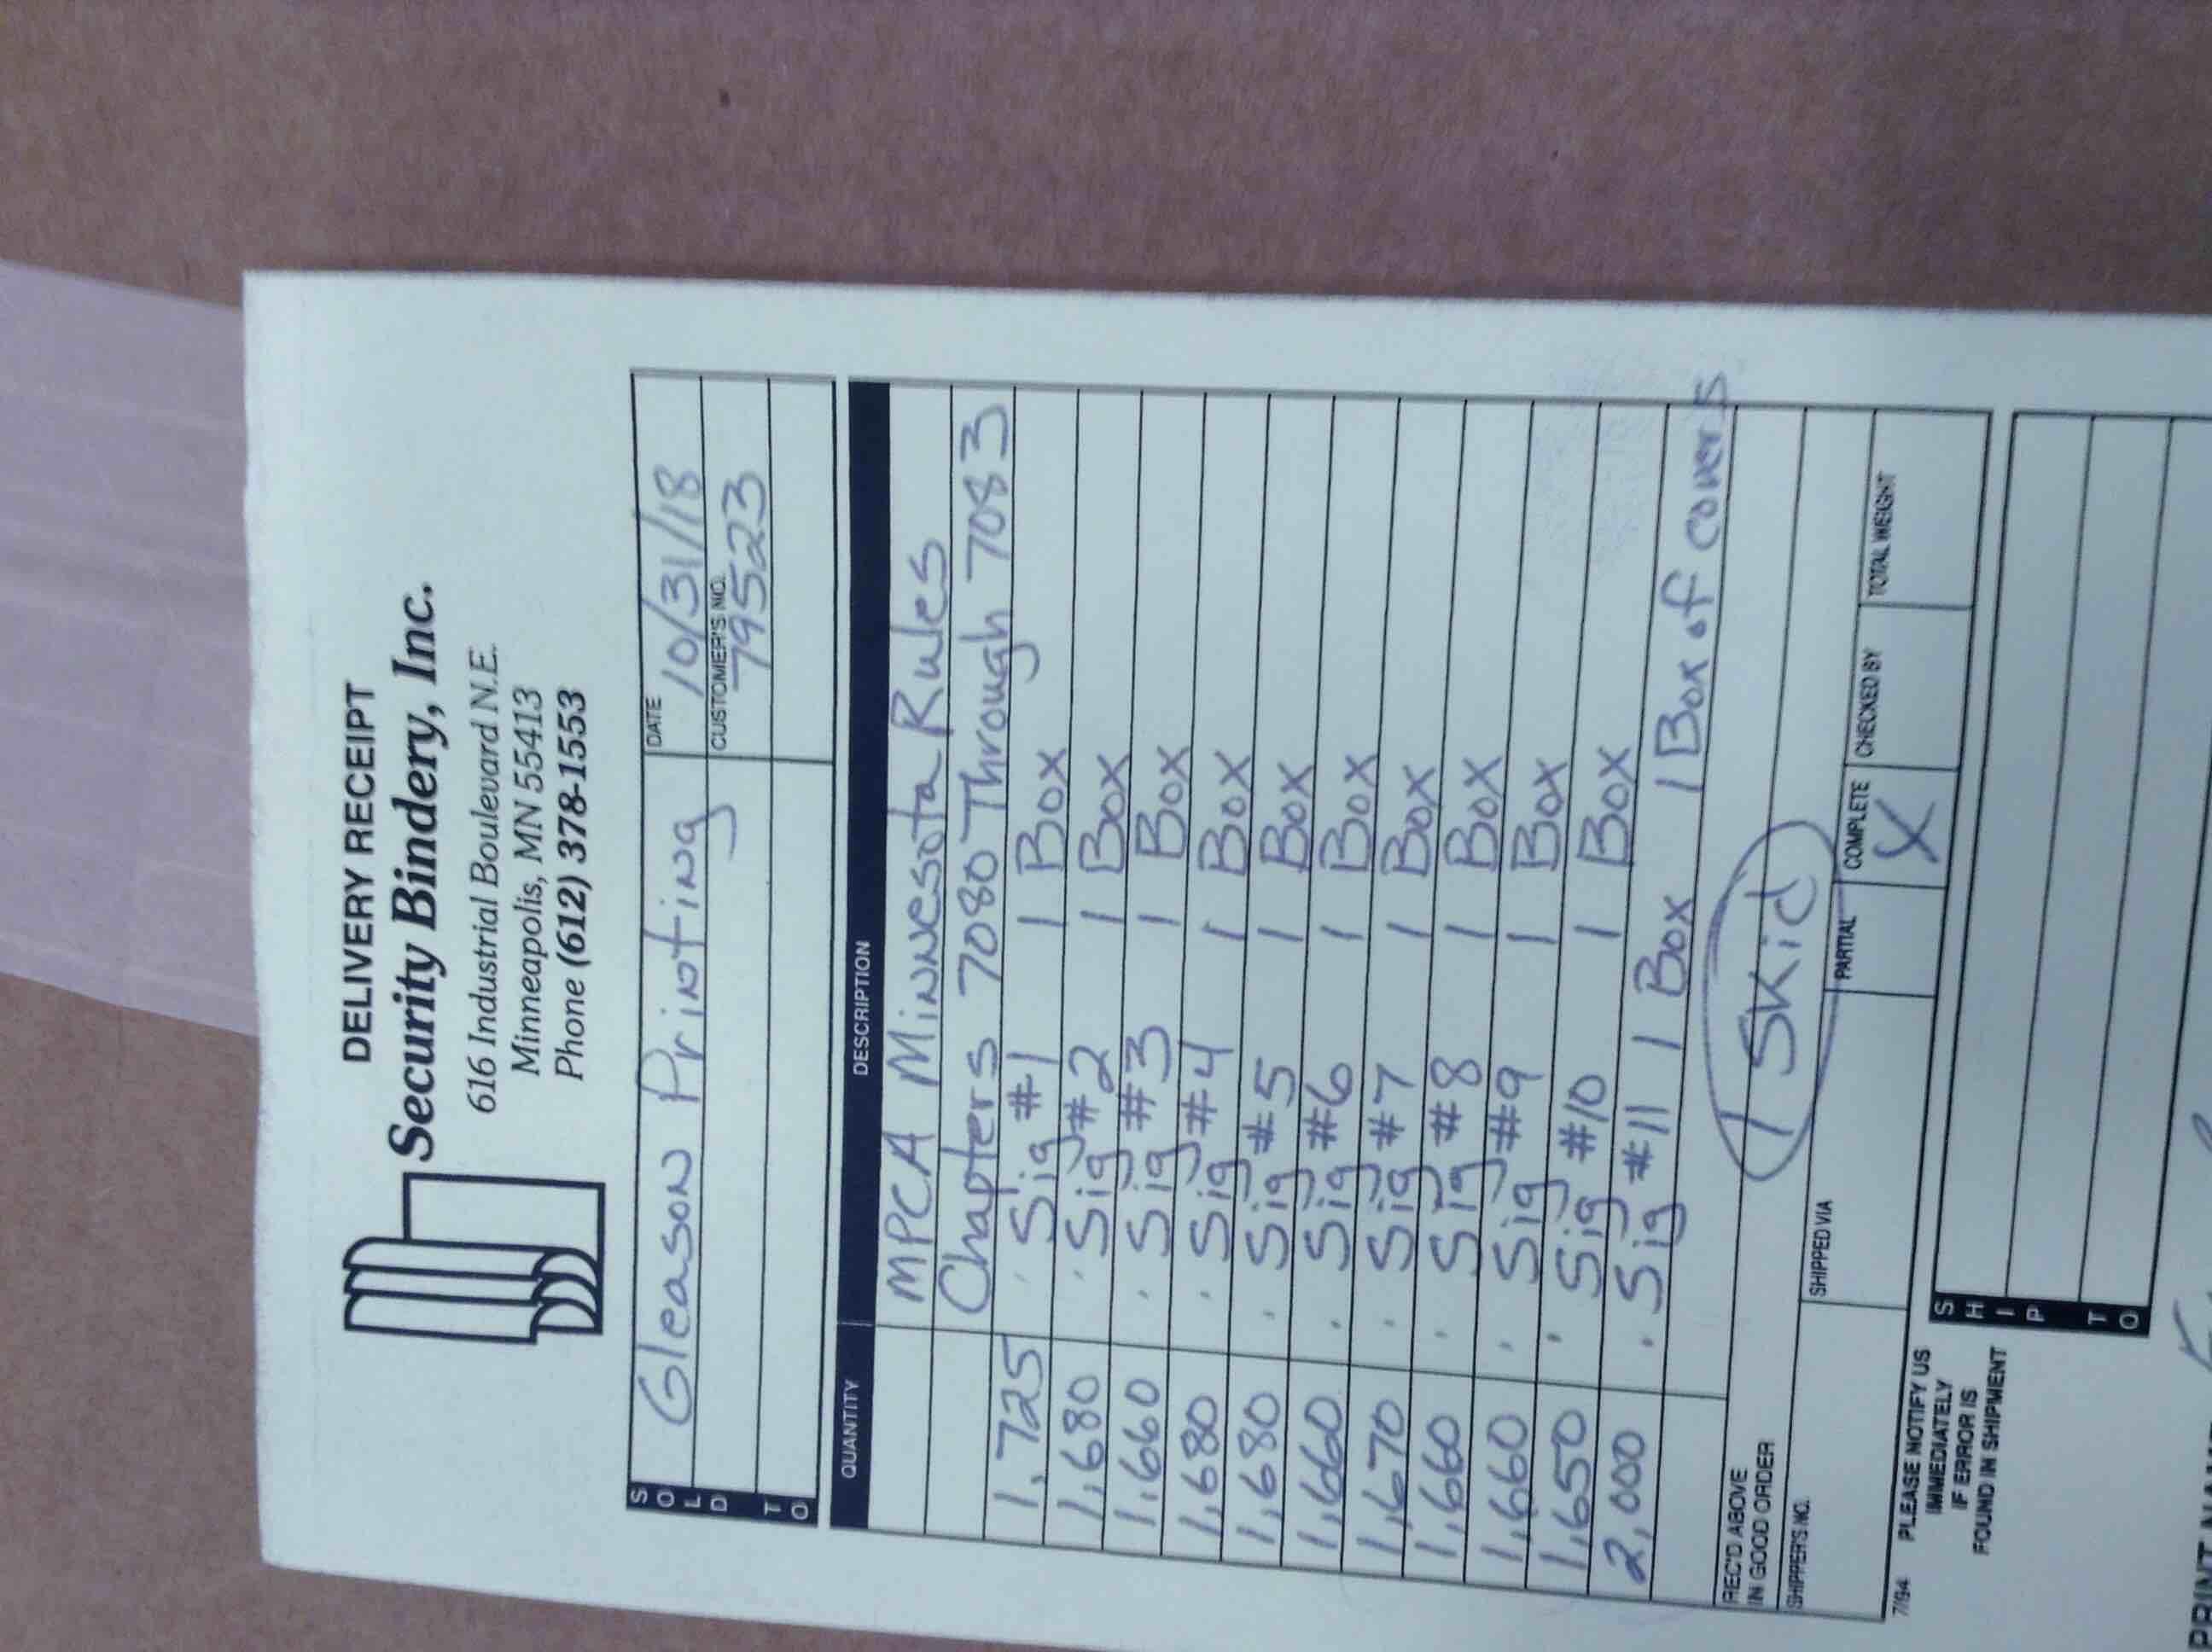 DELIVERY RECEIPT
Security Bindery, Inc.
616 Industrial Boulevard N.E.
Minneapolis, MN 55413
Phone (612) 378-1553
SOLD TO
Gleason Printing
DATE
10/31/18
CUSTOMER'S NO.
79523
QUANTITY DESCRIPTION
MPCA Minnesota Rules
Chapters 7080 Through 7083
1,725 Sig #1 1 Box
1,680 Sig #2 1 Box
1,660 Sig #3 1 Box
1,680 Sig #4 1 Box
1,680 Sig #5 1 Box
1,660 Sig #6 1 Box
1,670 Sig #7 1 Box
1,660 Sig #8 1 Box
1,660 Sig #9 1 Box
1,650 Sig #10 1 Box
2,000 Sig #11 1 Box 1 Box of covers
REC'D ABOVE
IN GOOD ORDER
1 Skid
SHIPPER'S NO. SHIPPED VIA PARTIAL COMPLETE CHECKED BY TOTAL WEIGHT
X
7/94 PLEASE NOTIFY US
IMMEDIATELY
IF ERROR IS
FOUND IN SHIPMENT
SHIP TO